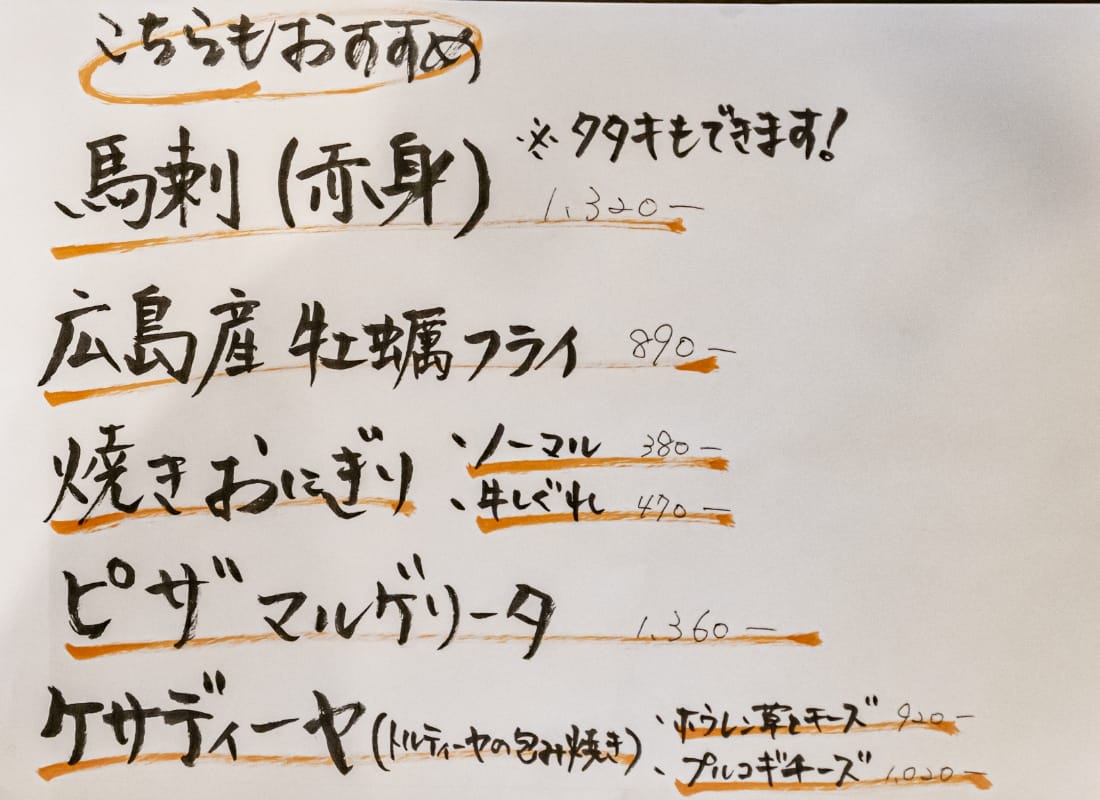 こちらもおすすめ
馬刺(赤身) 1,320ー
※タタキもできます!
広島産 牡蠣フライ 890ー
焼きおにぎり
、ノーマル 380ー
、牛しぐれ 470ー
ピザ マルゲリータ 1,360ー
ケサディーヤ(トルティーヤの包み焼き)
、ホウレン草とチーズ 920ー
、プルコギチーズ 1,020ー